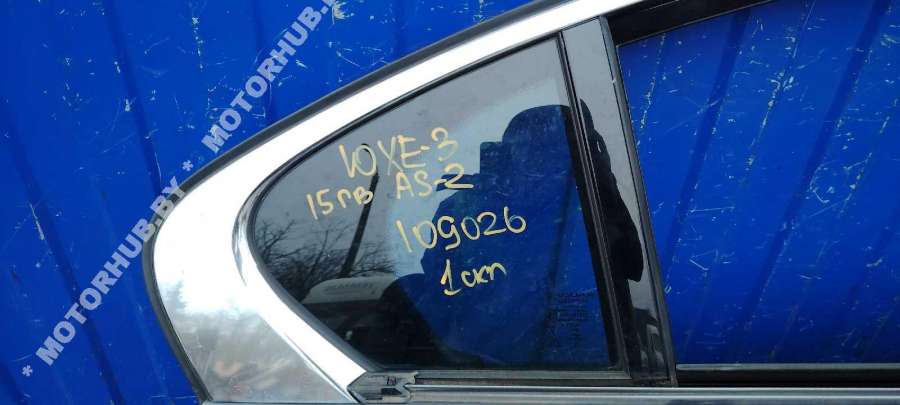 * MOTORHUB.BY * MOTORHUB.BY
ЮХЕ-3
15ПВ AS-2
109026
1скл